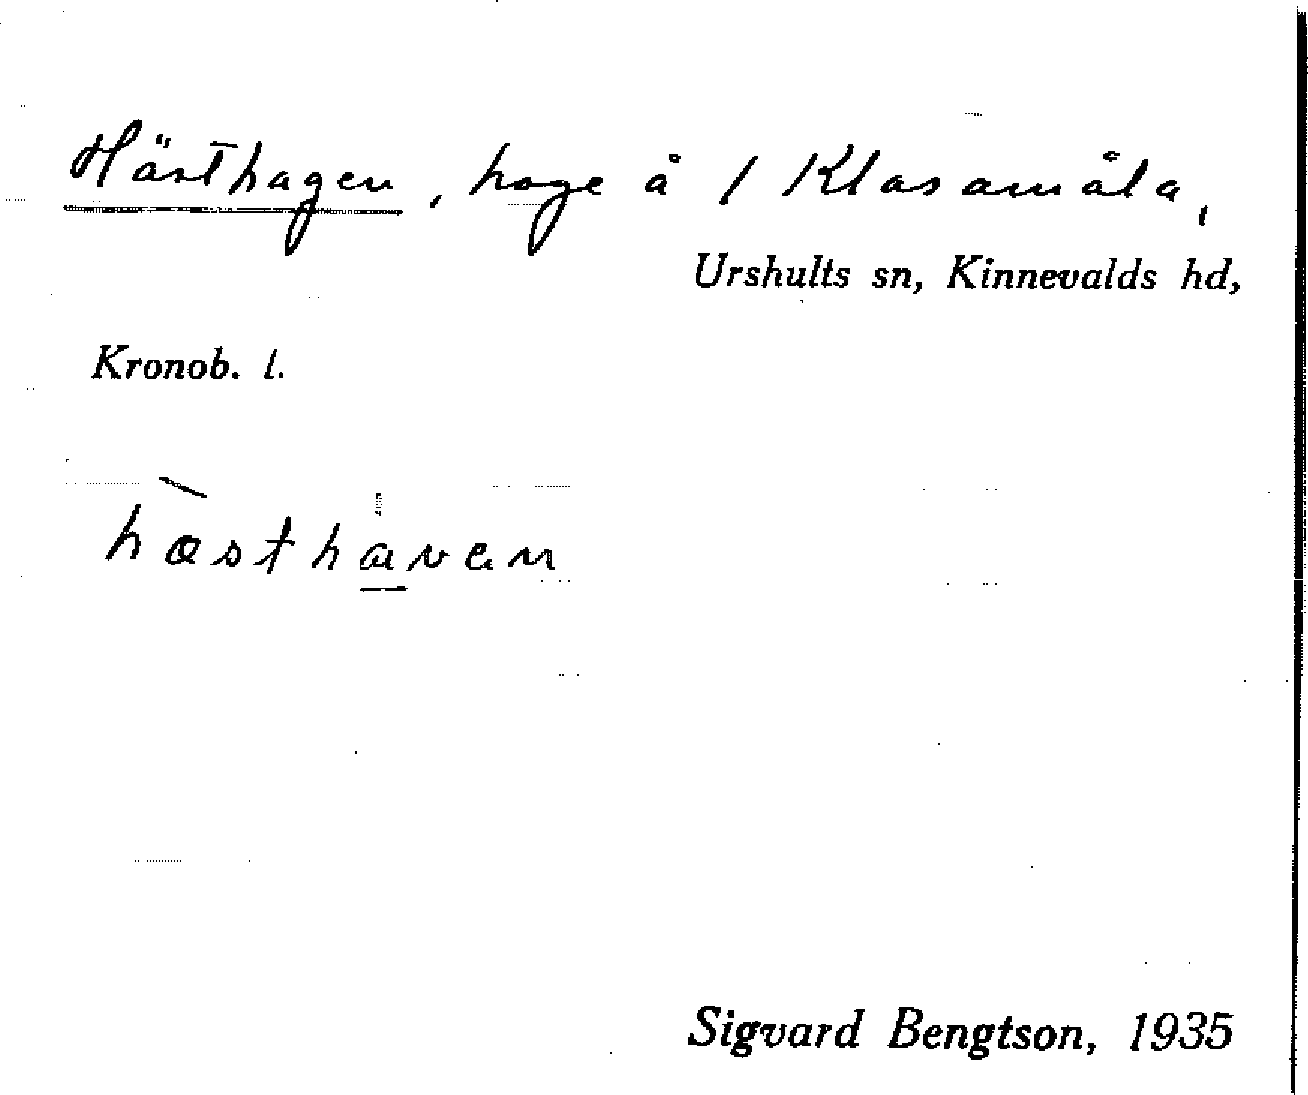 Hästhagen, hage å 1 Klasamåla,
Urshults sn, Kinnevalds hd,
Kronob. l.
hàsthaven
Sigvard Bengtson, 1935